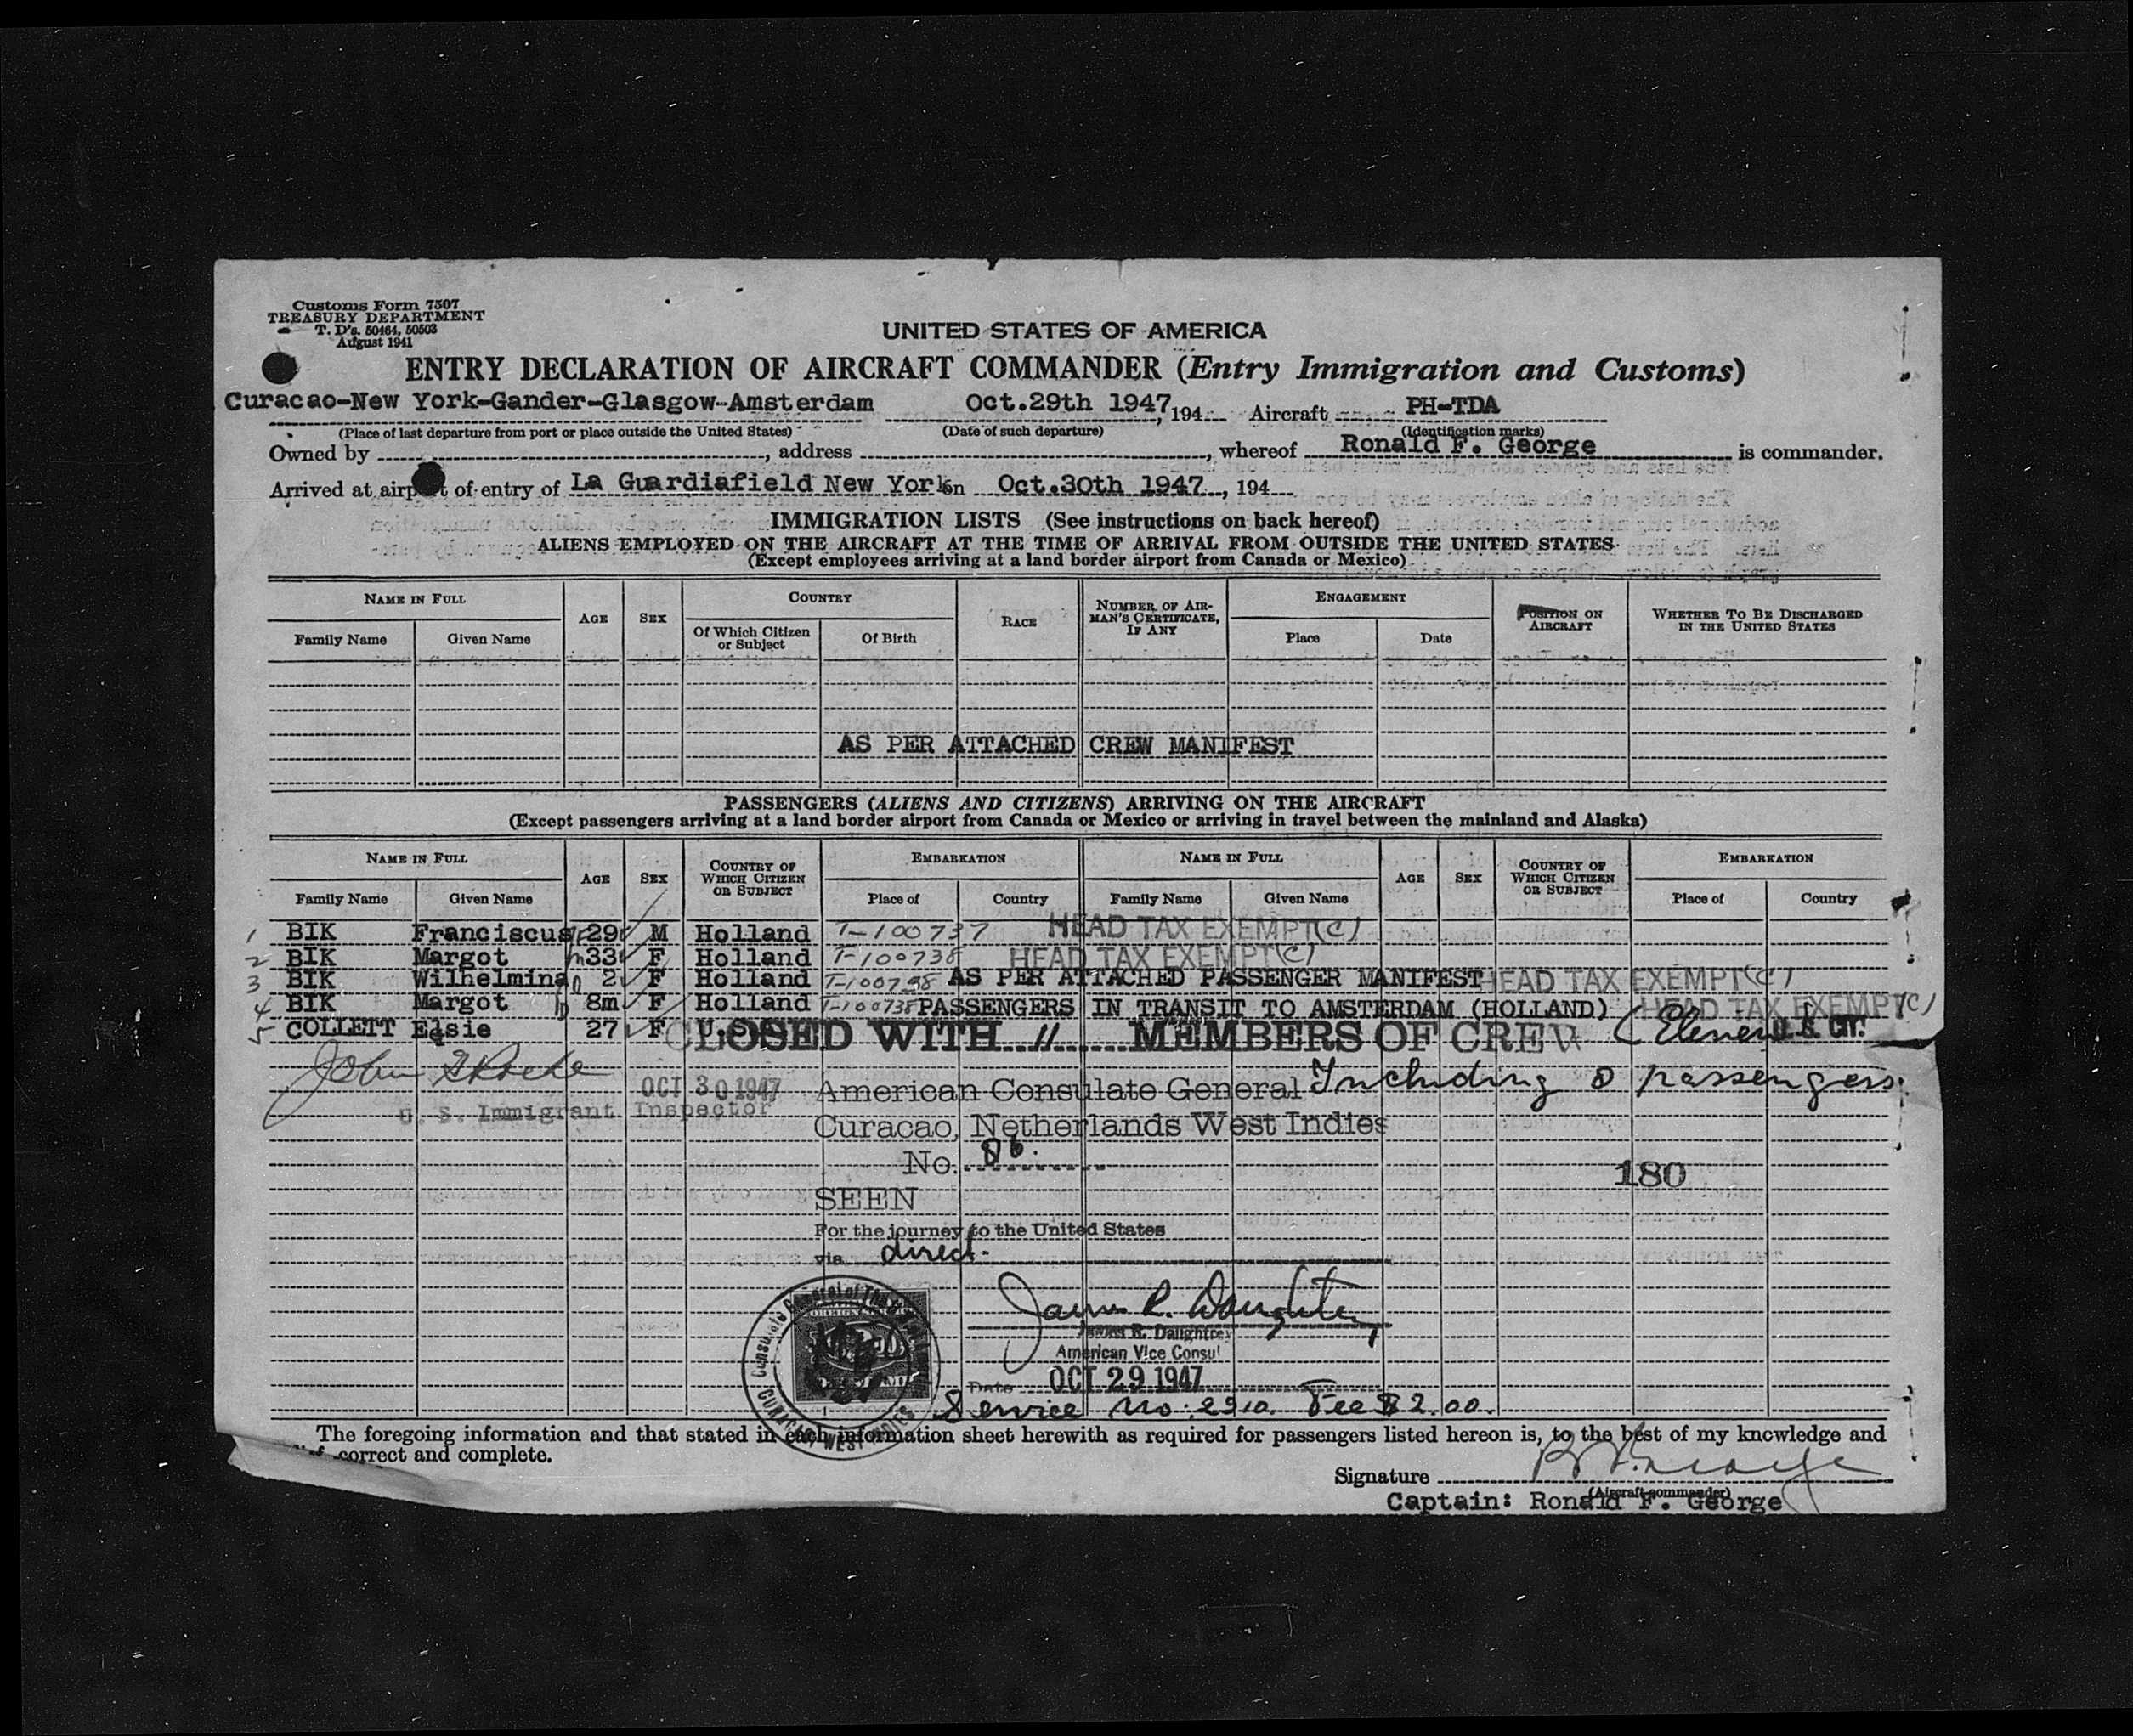 Customs Form 7507
TREASURY DEPARTMENT
T. D's. 50464, 50503
August 1941
UNITED STATES OF AMERICA
ENTRY DECLARATION OF AIRCRAFT COMMANDER (Entry Immigration and Customs)
Curacao-New York-Gander-Glasgow-Amsterdam Oct.29th 1947, 194 Aircraft PH-TDA
(Place of last departure from port or place outside the United States) (Date of such departure) (Identification marks)
Owned by , address , whereof Ronald F. George is commander.
Arrived at airport of entry of La Guardiafield New York on Oct.30th 1947, 194
IMMIGRATION LISTS (See instructions on back hereof)
ALIENS EMPLOYED ON THE AIRCRAFT AT THE TIME OF ARRIVAL FROM OUTSIDE THE UNITED STATES
(Except employees arriving at a land border airport from Canada or Mexico)
NAME IN FULL AGE SEX COUNTRY RACE NUMBER OF AIRMAN'S CERTIFICATE, IF ANY ENGAGEMENT POSITION ON AIRCRAFT WHETHER TO BE DISCHARGED IN THE UNITED STATES
Family Name Given Name Of Which Citizen or Subject Of Birth Place Date
AS PER ATTACHED CREW MANIFEST
PASSENGERS (ALIENS AND CITIZENS) ARRIVING ON THE AIRCRAFT
(Except passengers arriving at a land border airport from Canada or Mexico or arriving in travel between the mainland and Alaska)
NAME IN FULL AGE SEX COUNTRY OF WHICH CITIZEN OR SUBJECT EMBARKATION NAME IN FULL AGE SEX COUNTRY OF WHICH CITIZEN OR SUBJECT EMBARKATION
Family Name Given Name Place of Country Family Name Given Name Place of Country
1 BIK Franciscus 29 M Holland T-100737 HEAD TAX EXEMPT (C)
2 BIK Margot m 33 F Holland T-100738 HEAD TAX EXEMPT (C)
3 BIK Wilhelmina 2 F Holland T-100738 AS PER ATTACHED PASSENGER MANIFEST HEAD TAX EXEMPT (C)
4 BIK Margot 8m F Holland T-100738 PASSENGERS IN TRANSIT TO AMSTERDAM (HOLLAND) HEAD TAX EXEMPT (C)
5 COLLETT Elsie 27 F U.S. U. S. CIT.
CLOSED WITH 11 MEMBERS OF CREW (Eleven
John
OCT 30 1947 American Consulate General Including 0 passengers.
U. S. Immigrant Inspector
Curacao, Netherlands West Indies
No. 86.
180
SEEN
For the journey to the United States
via direct.
James R. Daughtrey
James R. Daughtrey
American Vice Consul
Date OCT 29 1947
Service No: 2910. Fee $ 2.00.
CURACAO, WEST INDIES
The foregoing information and that stated in each information sheet herewith as required for passengers listed hereon is, to the best of my knowledge and
correct and complete.
Signature R F George
(Aircraft commander)
Captain: Ronald F. George